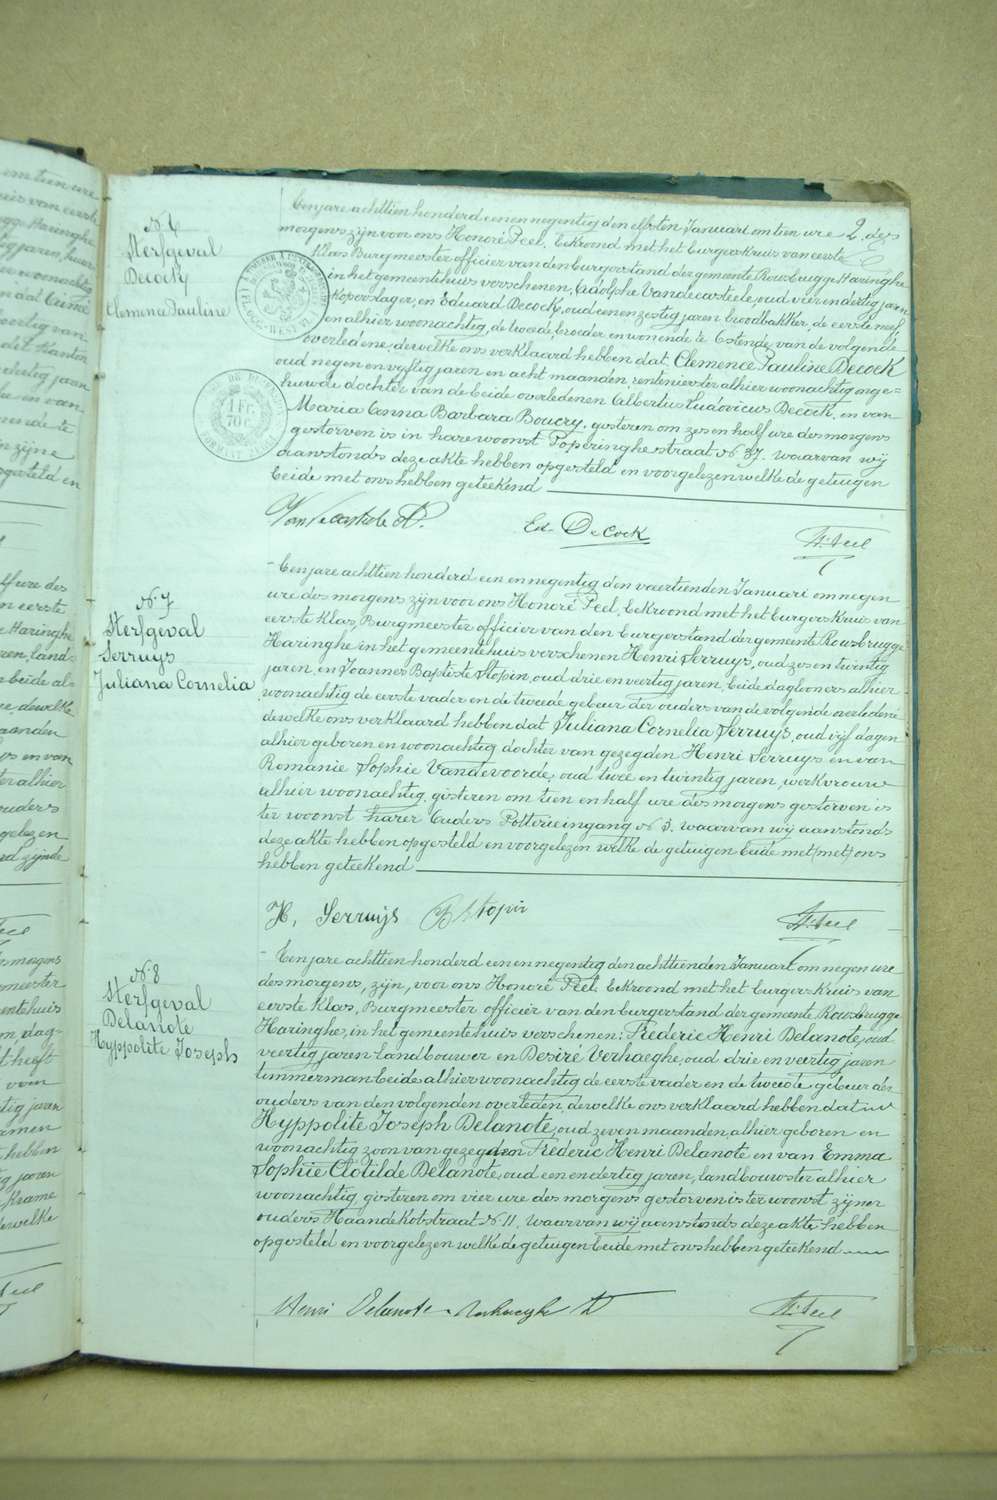 2 des
No 6
Sterfgeval
Decock
Clemence Pauline
Een jare achttien honderd een en negentig den elfsten Januari om tien ure
morgens zijn voor ons Honoré Peel, Eekroond met het Burgerskruis van eerste
Klas Burgmeester officier van den burgerstand der gemente Rousbrugge Haringhe
in het gemeentehuis verschenen, Adolphe Vandecasteele, oud vier en dertig jaren
koperslager, en Eduard Decock, oud een en zestig jaren broodbakker, de eerste neef,
en alhier woonachtig, de tweede, broeder en wonende te Ostende, van de volgende
overledene, dewelke ons verklaard hebben dat, Clemence Pauline Decock
oud negen en vijftig jaren en acht maanden, rentenierster alhier woonachtig onge=
huwde dochter van de beide overledenen Albertus Ludovicus Decock, en van
Maria Anna Barbara Boucry, gisteren om zes en half ure des morgens
gestorven is in hare woonst Poperinghe straat No 37. waarvan wij
aanstonds deze akte hebben opgesteld en voorgelezen welke de getuigen
beide met ons hebben geteekend
Vandecasteele A. Ed. DeCock H. Peel
1 Fr.
70 c.
No 7
Sterfgeval
Serruys
Juliana Cornelia
Een jare achttien honderd een en negentig den veertienden Januari om negen
ure des morgens zijn voor ons Honoré Peel, Eekroond met het Burgers Kruis van
eerste Klas, Burgmeester officier van den burgerstand der gemente Rousbrugge
Haringhe in het gemeentehuis verschenen Henri Serruys, oud zes en twintig
jaren, en Joannes Baptiste Stopin, oud drie en veertig jaren, beide dagloners alhier
woonachtig de eerste vader en de tweede gebeur der ouders van de volgende overledene
dewelke ons verklaard hebben dat Juliana Cornelia Serruys, oud vijf dagen
alhier geboren en woonachtig dochter van gezegden Henri Serruys en van
Romanie Sophie Vandevoorde, oud twee en twintig jaren, werkvrouw
alhier woonachtig, gisteren om tien en half ure des morgens gestorven is
ter woonst harer Ouders Potterieingang No 3. waarvan wij aanstonds
deze akte hebben opgesteld en voorgelezen welke de getuigen beide met (met) ons
hebben geteekend
H. Serruijs B Stopin H. Peel
No 8
Sterfgeval
Delanote
Hyppolite Joseph
Een jare achttien honderd een en negentig den achttienden Januari om negen ure
des morgens, zijn, voor ons Honoré Peel, Eekroond met het burgers Kruis van
eerste Klas, Burgmeester officier van den burgerstand der gemente Rousbrugge
Haringhe, in het gemeentehuis verschenen, Frederic Henri Delanote, oud
veertig jaren landbouwer en Desiré Verhaeghe, oud drie en veertig jaren
timmerman beide alhier woonachtig de eerste vader en de tweede gebeur der
ouders van den volgenden overleden, dewelke ons verklaard hebben dat
Hyppolite Joseph Delanote, oud zeven maanden, alhier geboren en
woonachtig zoon van gezegden Frederic Henri Delanote en van Emma
Sophie Clotilde Delanote, oud een en dertig jaren, landbouwster alhier
woonachtig, gisteren om vier ure des morgens gestorven is ter woonst zijner
ouders Haandekotstraat No 11. waarvan wij aanstonds deze akte hebben
opgesteld en voorgelezen welke de getuigen beide met ons hebben geteekend
Henri Delanote Verhaeghe D H. Peel